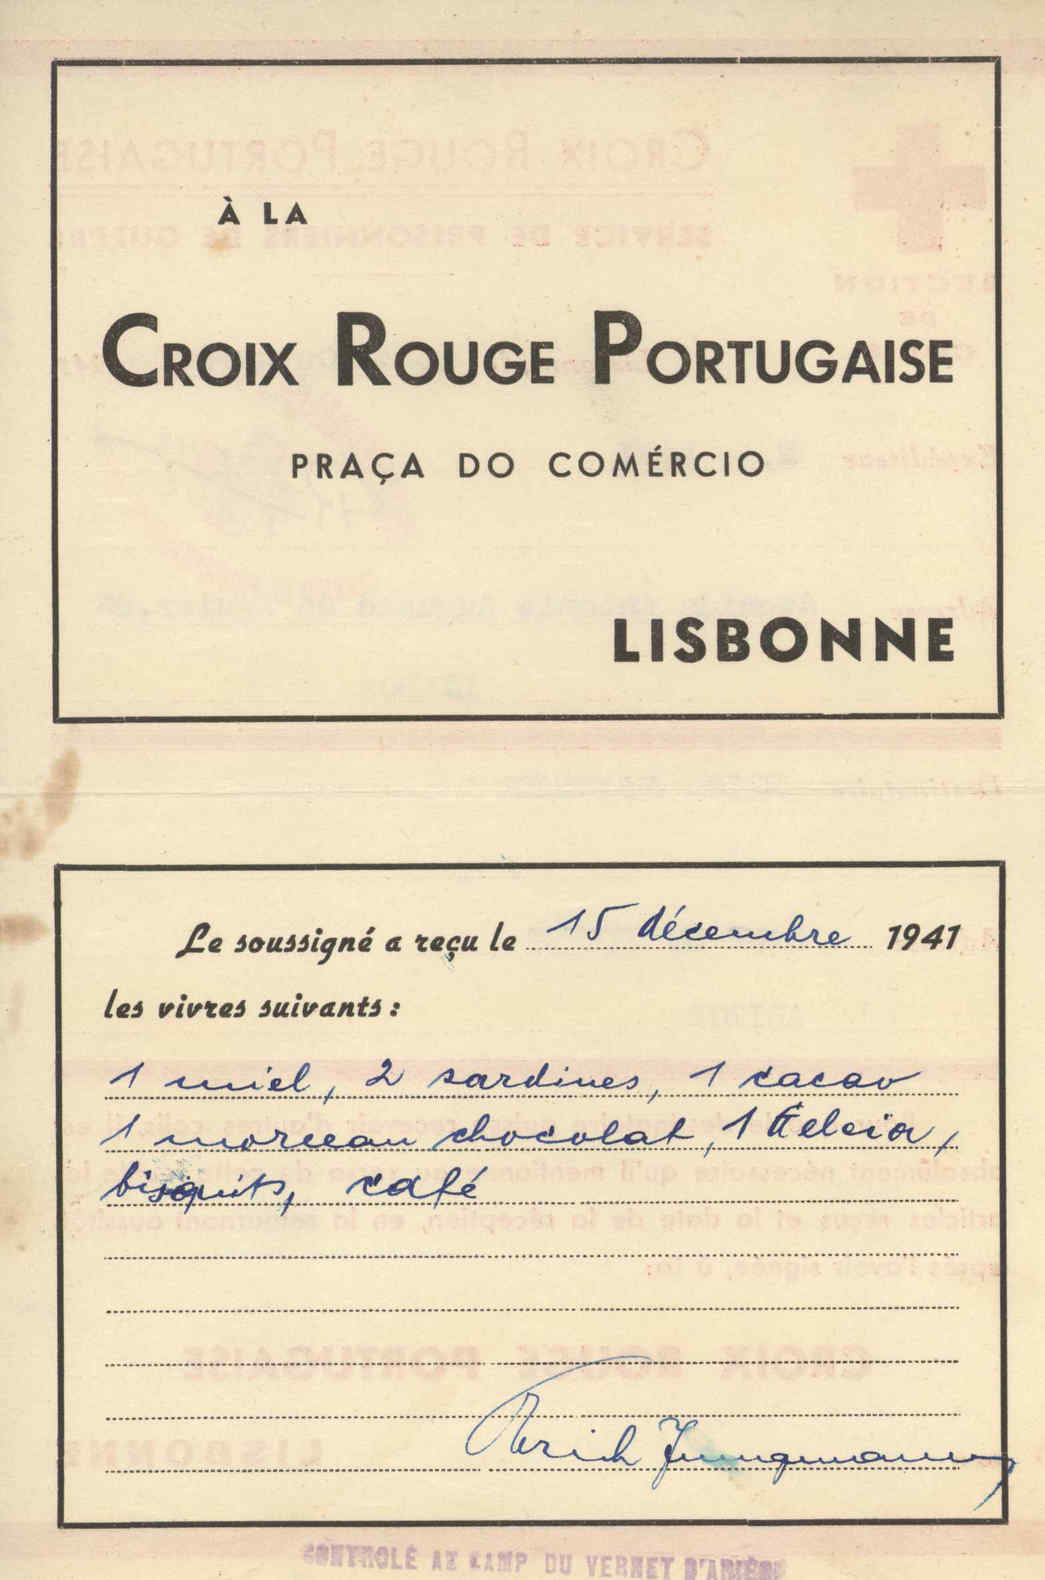 À LA
CROIX ROUGE PORTUGAISE
PRAÇA DO COMÉRCIO
LISBONNE
Le soussigné a reçu le 15 décembre 1941
les vivres suivants:
1 miel, 2 sardines, 1 cacao
1 morceau chocolat, 1 Geleia,
bisquits, café
Erich Jungmann
CONTROLÉ AU CAMP DU VERNET D'ARIÈGE